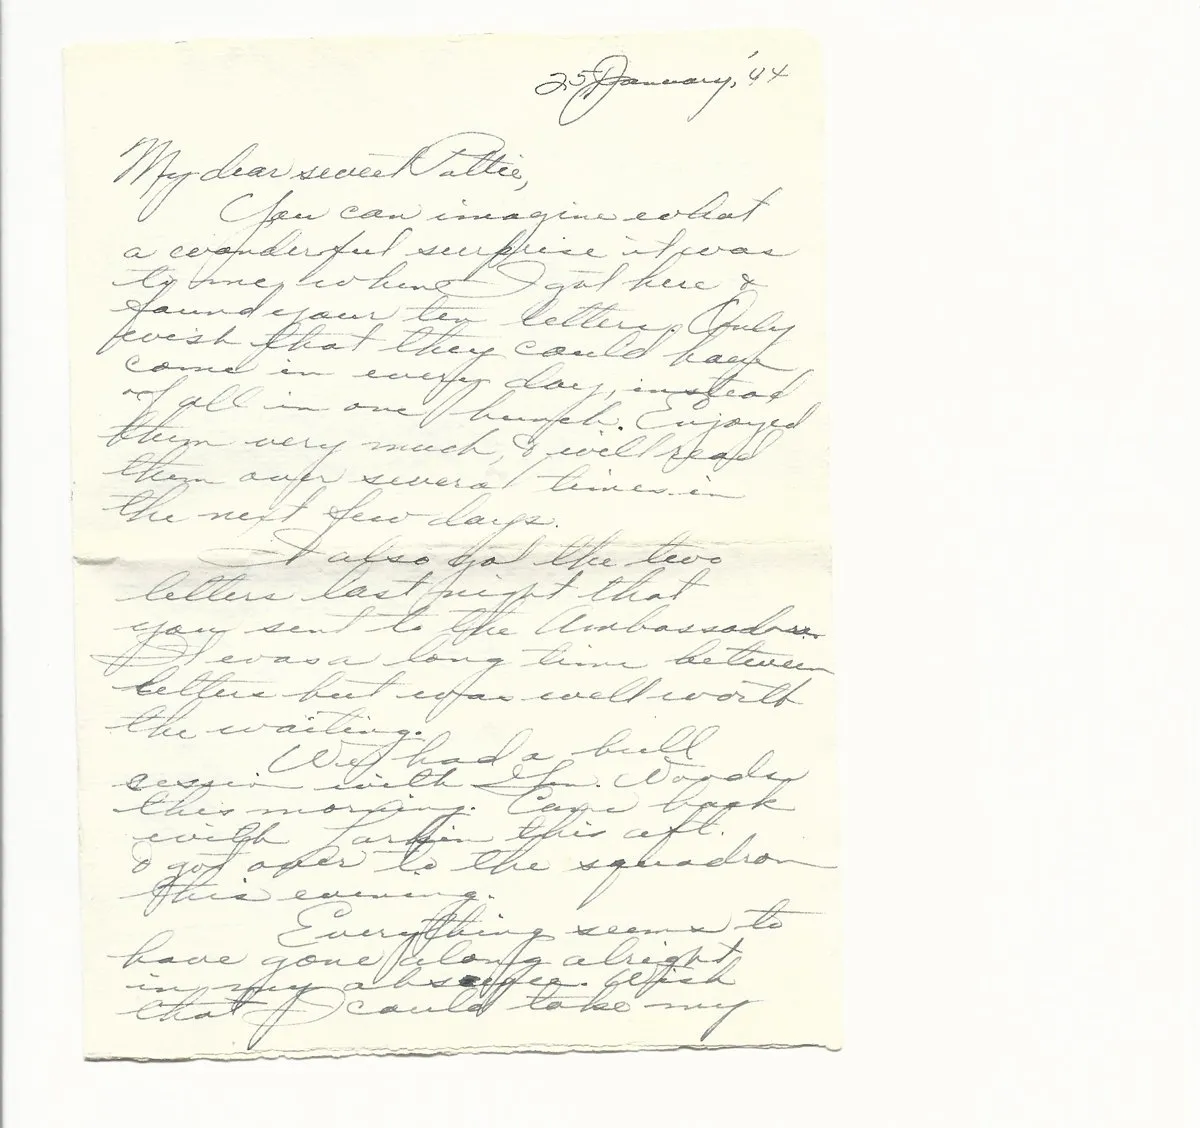 25 January, '44
My dear sweet Pattie,
You can imagine what
a wonderful surprise it was
to me, when I got here &
found your ten letters. Only
wish that they could have
come in every day, instead
of all in one bunch. Enjoyed
them very much, & will read
them over several times in
the next few days.
I also got the two
letters last night that
you sent to the Ambassador.
It was a long time between
letters but was well worth
the waiting.
We had a bull
session with Gen. Woods
this morning. Came back
with Larkin this aft.
& got over to the squadron
this evening.
Everything seems to
have gone along alright
in my absence. Wish
that I could take my